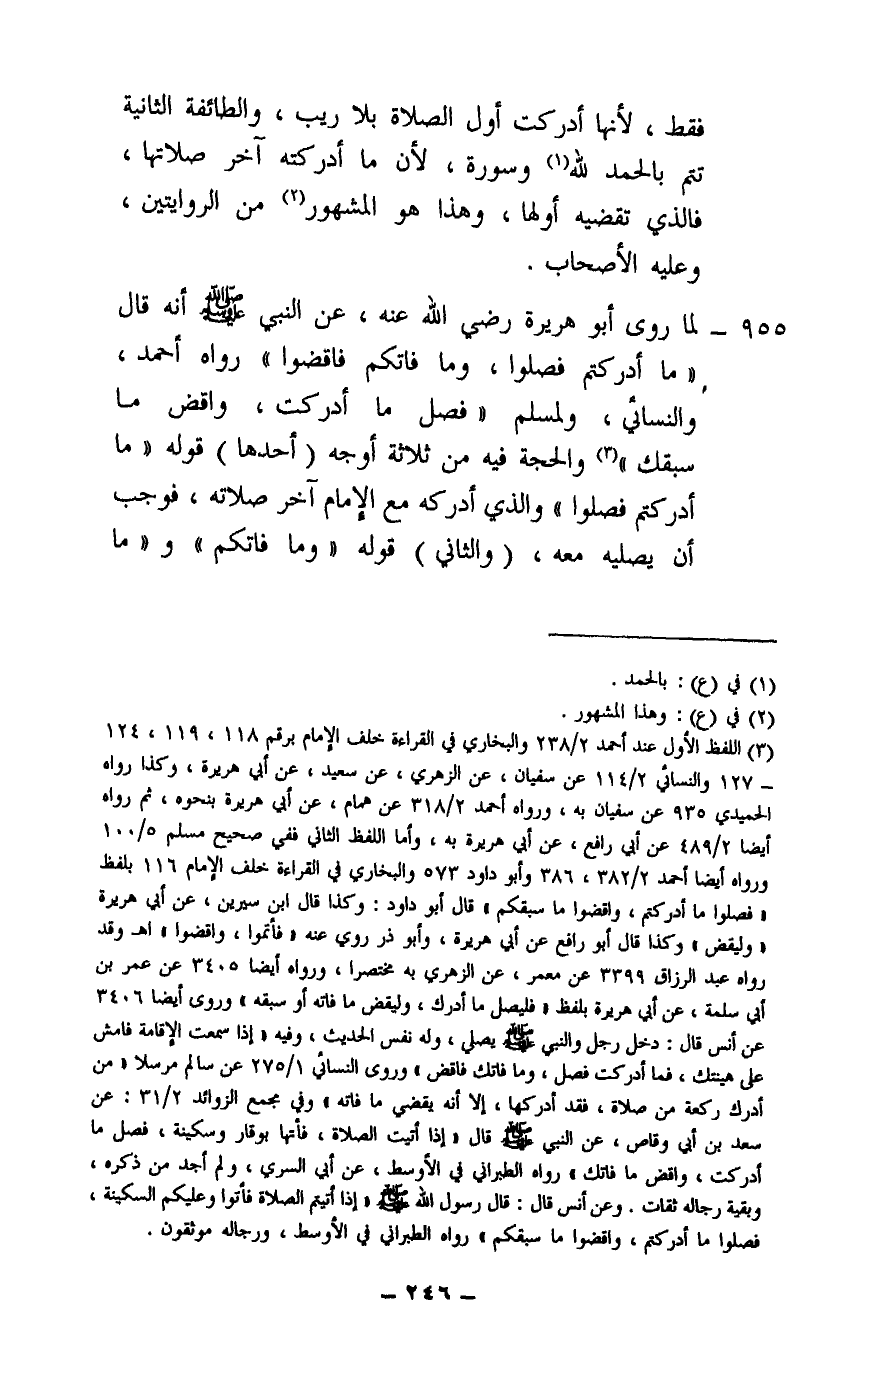 فقط ، لأنها أدركت أول الصلاة بلا ريب ، والطائفة الثانية
تتم بالحمد لله(١) وسورة ، لأن ما أدركته آخر صلاتها ،
فالذي تقضيه أولها ، وهذا هو المشهور(٢) من الروايتين ،
وعليه الأصحاب .
٩٥٥ – لما روى أبو هريرة رضي الله عنه ، عن النبي ﷺ أنه قال
« ما أدركتم فصلوا ، وما فاتكم فاقضوا » رواه أحمد ،
والنسائي ، ولمسلم « فصل ما أدركت ، واقض مـا
سبقك »(٣) والحجة فيه من ثلاثة أوجه ( أحدها ) قوله « ما
أدركتم فصلوا » والذي أدركه مع الإمام آخر صلاته ، فوجب
أن يصليه معه ، ( والثاني ) قوله « وما فاتكم » و « ما
(١) في (ع) : بالحمد .
(٢) في (ع) : وهذا المشهور .
(٣) اللفظ الأول عند أحمد ٢٣٨/٢ والبخاري في القراءة خلف الإمام برقم ١١٨ ، ١١٩ ، ١٢٤
– ١٢٧ والنسائي ١١٤/٢ عن سفيان ، عن الزهري ، عن سعيد ، عن أبي هريرة ، وكذا رواه
الحميدي ٩٣٥ عن سفيان به ، ورواه أحمد ٣١٨/٢ عن همام ، عن أبي هريرة بنحوه ، ثم رواه
أيضا ٤٨٩/٢ عن أبي رافع ، عن أبي هريرة به ، وأما اللفظ الثاني ففي صحيح مسلم ١٠٠/٥
ورواه أيضا أحمد ٣٨٢/٢ ، ٣٨٦ وأبو داود ٥٧٣ والبخاري في القراءة خلف الإمام ١١٦ بلفظ
« فصلوا ما أدركتم ، واقضوا ما سبقكم » قال أبو داود : وكذا قال ابن سيرين ، عن أبي هريرة
« وليقض » وكذا قال أبو رافع عن أبي هريرة ، وأبو ذر روي عنه « فأتموا ، واقضوا » اهـ وقد
رواه عبد الرزاق ٣٣٩٩ عن معمر ، عن الزهري به مختصرا ، ورواه أيضا ٣٤٠٥ عن عمر بن
أبي سلمة ، عن أبي هريرة بلفظ « فليصل ما أدرك ، وليقض ما فاته أو سبقه » وروى أيضا ٣٤٠٦
عن أنس قال : دخل رجل والنبي ﷺ يصلي ، وله نفس الحديث ، وفيه « إذا سمعت الإقامة فامش
على هينتك ، فما أدركت فصل ، وما فاتك فاقض » وروى النسائي ٢٧٥/١ عن سالم مرسلا « من
أدرك ركعة من صلاة ، فقد أدركها ، إلا أنه يقضي ما فاته » وفي مجمع الزوائد ٣١/٢ : عن
سعد بن أبي وقاص ، عن النبي ﷺ قال « إذا أتيت الصلاة ، فأتها بوقار وسكينة ، فصل ما
أدركت ، واقض ما فاتك » رواه الطبراني في الأوسط ، عن أبي السري ، ولم أجد من ذكره ،
وبقية رجاله ثقات . وعن أنس قال : قال رسول الله ﷺ « إذا أتيتم الصلاة فأتوا وعليكم السكينة ،
فصلوا ما أدركتم ، واقضوا ما سبقكم » رواه الطبراني في الأوسط ، ورجاله موثقون .
– ٢٤٦ –